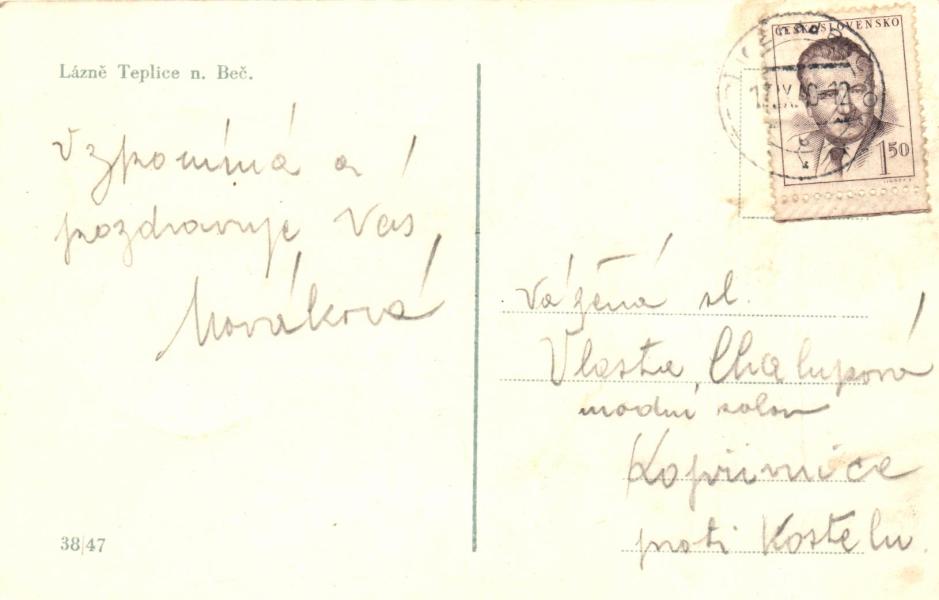 Lázně Teplice n. Beč.
Vzpomíná a
pozdravuje Vás
Nováková
38/47
ČESKOSLOVENSKO
1 50
Vážená sl.
Vlasta Chalupová
modní salon
Kopřivnice
proti Kostelu.